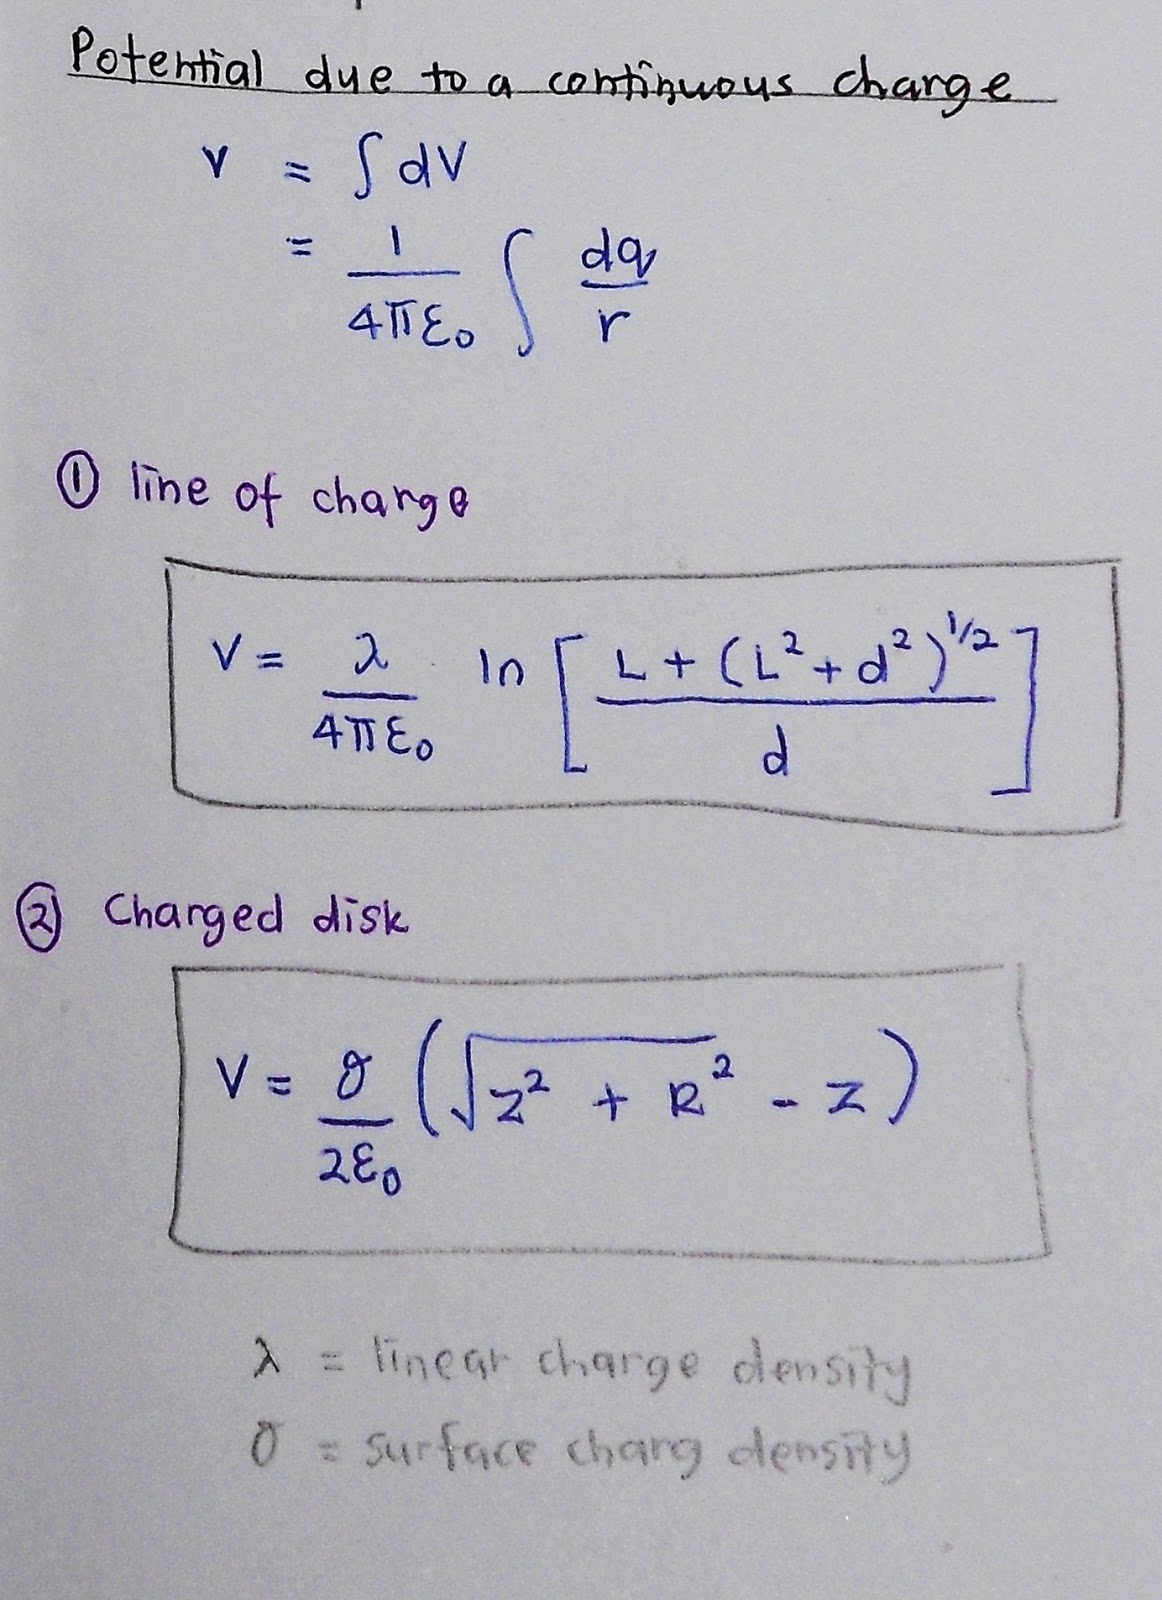 Potential due to a continuous charge
V = ∫ dV
= 1/4πε₀ ∫ dq/r
① line of charge
V = λ/4πε₀ ln [ L + (L² + d²)^1/2 / d ]
② Charged disk
V = σ/2ε₀ (√z² + R² - z)
λ = linear charge density
σ = surface charg density